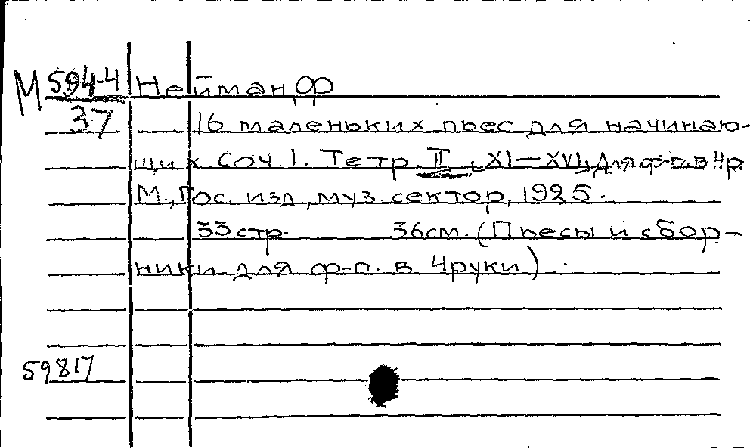 М 594-4 Нейман, Ф
37 16 маленьких пьес для начинаю-
щих Соч 1. Тетр. II, XI—XVI, Для ф-п. в 4 р
М, Гос. изд, муз. сектор, 1925.
33 стр. 36см. (Пьесы и сбор-
ники для ф-п. в 4 руки).
59817